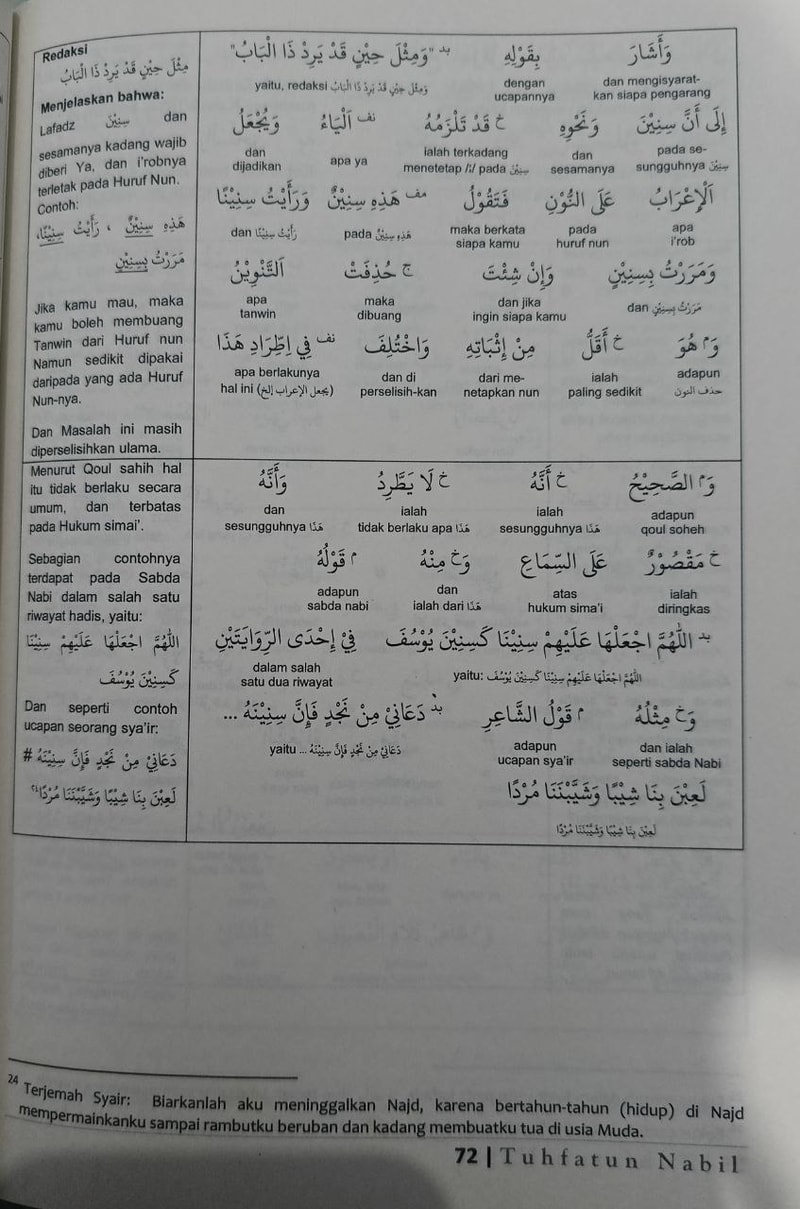 Redaksi
مِثْلَ حِيْنٍ قَدْ يَرِدُ ذَا الْبَابُ
Menjelaskan bahwa:
Lafadz سِنِيْنَ dan
sesamanya kadang wajib
diberi Ya, dan i'robnya
terletak pada Huruf Nun.
Contoh:
هَذِهِ سِنِيْنٌ ، رَأَيْتُ سِنِيْنًا،
مَرَرْتُ بِسِنِيْنٍ
Jika kamu mau, maka
kamu boleh membuang
Tanwin dari Huruf nun
Namun sedikit dipakai
daripada yang ada Huruf
Nun-nya.
Dan Masalah ini masih
diperselisihkan ulama.
وَأَشَارَ بِقَوْلِهِ بد "وَمِثْلَ حِيْنٍ قَدْ يَرِدُ ذَا الْبَابُ"
dan mengisyarat-
kan siapa pengarang
dengan
ucapannya
yaitu, redaksi وَمِثْلَ حِيْنٍ قَدْ يَرِدُ ذَا الْبَابُ
إِلَى أَنَّ سِنِيْنَ وَنَحْوِهِ خ قَدْ تَلْزَمُهُ نف الْيَاءُ وَيُجْعَلُ
pada se-
sungguhnya سِنِيْنَ
dan
sesamanya
ialah terkadang
menetetap /i/ pada سِنِيْنَ
apa ya
dan
dijadikan
اَلْإِعْرَابُ عَلَى النُّوْنِ فَتَقُوْلُ مف هَذِهِ سِنِيْنٌ وَرَأَيْتُ سِنِيْنًا
apa
i'rob
pada
huruf nun
maka berkata
siapa kamu
pada هَذِهِ سِنِيْنٌ
dan رَأَيْتُ سِنِيْنًا
وَمَرَرْتُ بِسِنِيْنٍ وَإِنْ شِئْتَ ج حُذِفَتْ اَلتَّنْوِيْنُ
dan مَرَرْتُ بِسِنِيْنٍ
dan jika
ingin siapa kamu
maka
dibuang
apa
tanwin
وَ م هُوَ خ أَقَلُّ مِنْ إِثْبَاتِهِ وَاخْتُلِفَ نف فِي اِطِّرَادِ هَذَا
adapun
حذف النون
ialah
paling sedikit
dari me-
netapkan nun
dan di
perselisih-kan
apa berlakunya
hal ini (يجعل الإعراب إلخ)
Menurut Qoul sahih hal
itu tidak berlaku secara
umum, dan terbatas
pada Hukum simai'.
Sebagian contohnya
terdapat pada Sabda
Nabi dalam salah satu
riwayat hadis, yaitu:
اللَّهُمَّ اجْعَلْهَا عَلَيْهِمْ سِنِيْنًا
كَسِنِيْنِ يُوْسُفَ
Dan seperti contoh
ucapan seorang sya'ir:
دَعَانِيْ مِنْ نَجْدٍ فَإِنَّ سِنِيْنَهُ #
لَعِبْنَ بِنَا شِيْبًا وَشَيَّبْنَنَا مُرْدًا ٢٤
وَ م الصَّحِيْحُ خ أَنَّهُ خ لَا يَطَّرِدُ وَأَنَّهُ
adapun
qoul soheh
ialah
sesungguhnya هَذَا
ialah
tidak berlaku apa هَذَا
dan
sesungguhnya هَذَا
خ مَقْصُوْرٌ عَلَى السِّمَاعِ وَخ مِنْهُ م قَوْلُهُ
ialah
diringkas
atas
hukum sima'i
dan
ialah dari هَذَا
adapun
sabda nabi
بد اللَّهُمَّ اجْعَلْهَا عَلَيْهِمْ سِنِيْنًا كَسِنِيْنِ يُوْسُفَ فِيْ إِحْدَى الرِّوَايَتَيْنِ
yaitu: اللَّهُمَّ اجْعَلْهَا عَلَيْهِمْ سِنِيْنًا كَسِنِيْنِ يُوْسُفَ
dalam salah
satu dua riwayat
وَخ مِثْلُهُ م قَوْلُ الشَّاعِرِ بد دَعَانِيْ مِنْ نَجْدٍ فَإِنَّ سِنِيْنَهُ ...
dan ialah
seperti sabda Nabi
adapun
ucapan sya'ir
yaitu ... دَعَانِيْ مِنْ نَجْدٍ فَإِنَّ سِنِيْنَهُ
لَعِبْنَ بِنَا شِيْبًا وَشَيَّبْنَنَا مُرْدًا
لَعِبْنَ بِنَا شِيْبًا وَشَيَّبْنَنَا مُرْدًا
24 Terjemah Syair: Biarkanlah aku meninggalkan Najd, karena bertahun-tahun (hidup) di Najd
mempermainkanku sampai rambutku beruban dan kadang membuatku tua di usia Muda.
72 | Tuhfatun Nabil